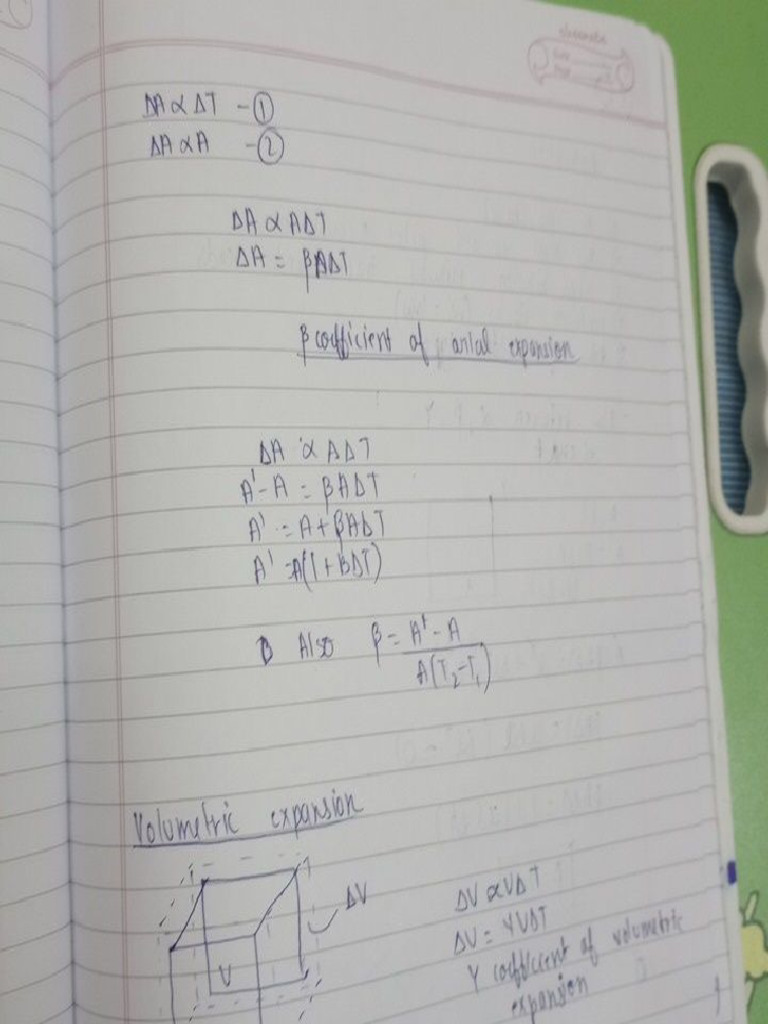 ΔA ∝ ΔT - ①
ΔA ∝ A - ②
ΔA ∝ AΔT
ΔA = βAΔT
β coefficient of arial expansion
ΔA ∝ AΔT
A' - A = βAΔT
A' = A + βAΔT
A' = A(1 + BΔT)
Also β = A' - A
A(T₂-T₁)
Volumetric expansion
ΔV
V
ΔV ∝ VΔT
ΔV = γVΔT
γ coefficient of volumetric
expansion